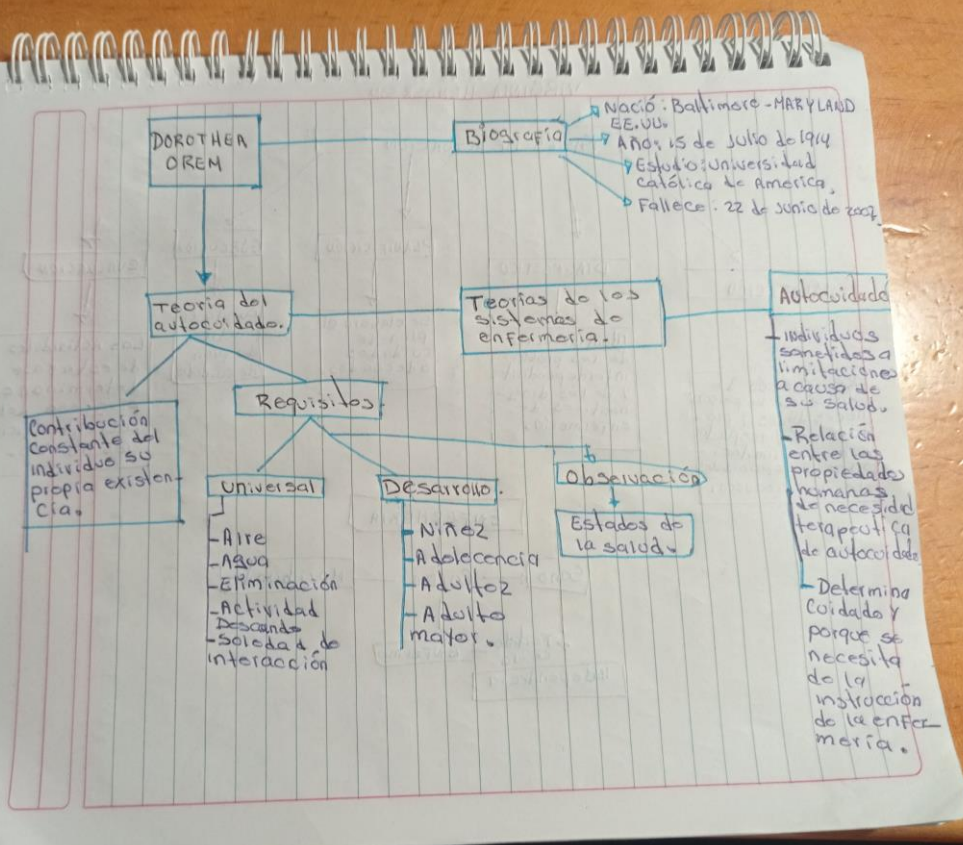 DOROTHEA
OREM
Biografía
Nació: Baltimore - MARYLAND
EE.UU.
Año: 15 de Julio de 1914
Estudio: Universidad
Católica de America.
Fallece: 22 de Junio de 2007
Teoria del
autocuidado.
Teorías de los
sistemas de
enfermería.
Autocuidado
- Individuos
sometidos a
limitaciones
a causa de
su salud.
- Relación
entre las
propiedades
humanas
de necesidad
terapeutica
de autocuidado
- Determina
cuidado y
porque se
necesita
de la
instrucción
de la enfer-
mería.
Contribución
constante del
individuo su
propia existen-
cia.
Requisitos
Universal
- Aire
- Agua
- Eliminación
- Actividad
Descando
- Soledad de
interacción
Desarrollo.
- Niñez
- Adolecencia
- Adultez
- Adulto
mayor.
Observación
Estados de
la salud.